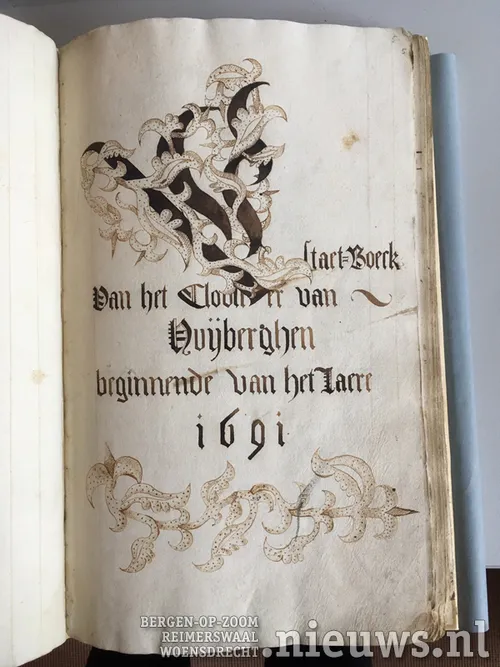 Staet=Boeck
Van het Clooster van
Huijberghen
beginnende van het Iaere
1691
BERGEN-OP-ZOOM
REIMERSWAAL
WOENSDRECHT .nieuws.nl